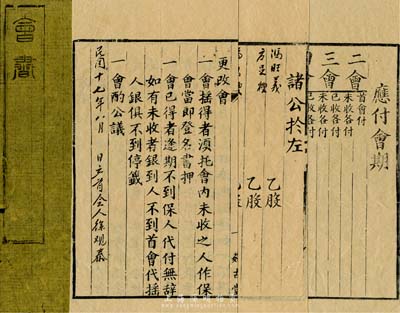 會書
應付會期
首會付
二會 未收各付
已收各付
三會 未收各付
已收各付
諸公於左
馮旺義 乙股
乙股
更改會
一會搖得者湏托會內未收之人作保
會當即登名書押
一會已得者逢期不到保人代付無辞
如有未收者銀到人不到首會代揺
人銀俱不到停籤
一會酌公議
民國十七年八月 日立首会人徐观泰